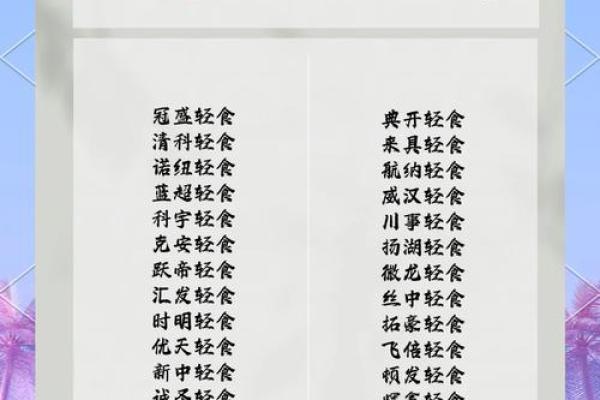 冠盛轻食
清科轻食
诺纽轻食
蓝超轻食
科宇轻食
克安轻食
跃帝轻食
汇发轻食
时明轻食
优天轻食
新中轻食
诚圣轻食
典开轻食
来具轻食
航纳轻食
威汉轻食
川事轻食
扬湖轻食
微龙轻食
丝中轻食
拓豪轻食
飞倍轻食
顿发轻食